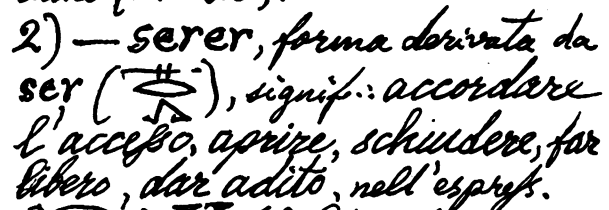 2) — serer, forma derivata da
ser ( ), signif.: accordare
l'accesso, aprire, schiudere, far
libero, dar adito, nell'espress.